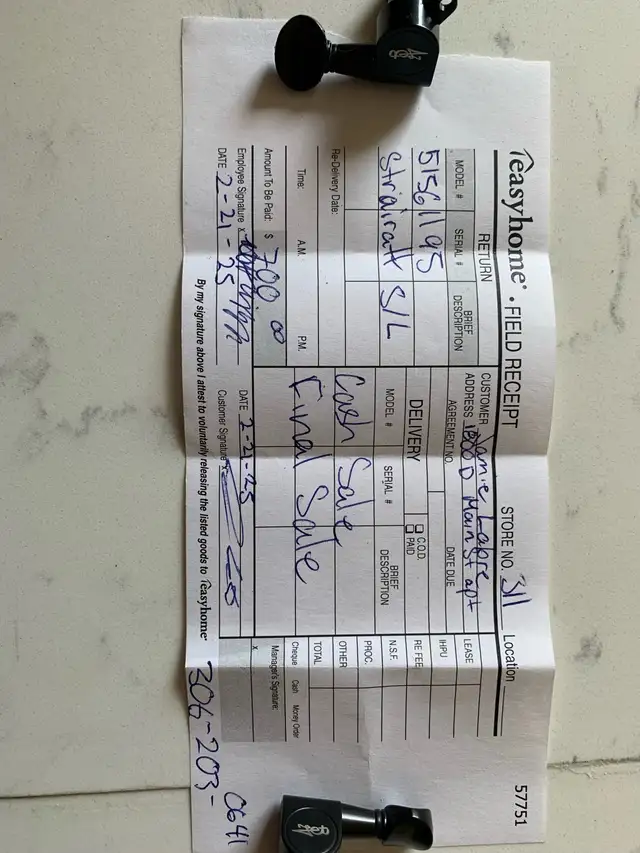 easyhome® • FIELD RECEIPT STORE NO. 311 Location 57751
RETURN
CUSTOMER Jamie Labre
ADDRESS 1800 D Main St apt
MODEL # SERIAL # BRIEF DESCRIPTION
AGREEMENT NO. DATE DUE
51561195
Strairatt S/L
DELIVERY C.O.D. PAID
MODEL # SERIAL # BRIEF DESCRIPTION
Cash Sale
Final Sale
Re-Delivery Date:
Time: A.M. P.M.
Amount To Be Paid: $ 700 00
Employee Signature x
DATE 2-21-25
DATE 2-21-25
Customer Signature x
LEASE
IHPU
RE FEE
N.S.F.
PROC.
OTHER
TOTAL
Cheque Cash Money Order
Manager's Signature:
x
By my signature above I attest to voluntarily releasing the listed goods to easyhome®
306-203-0641